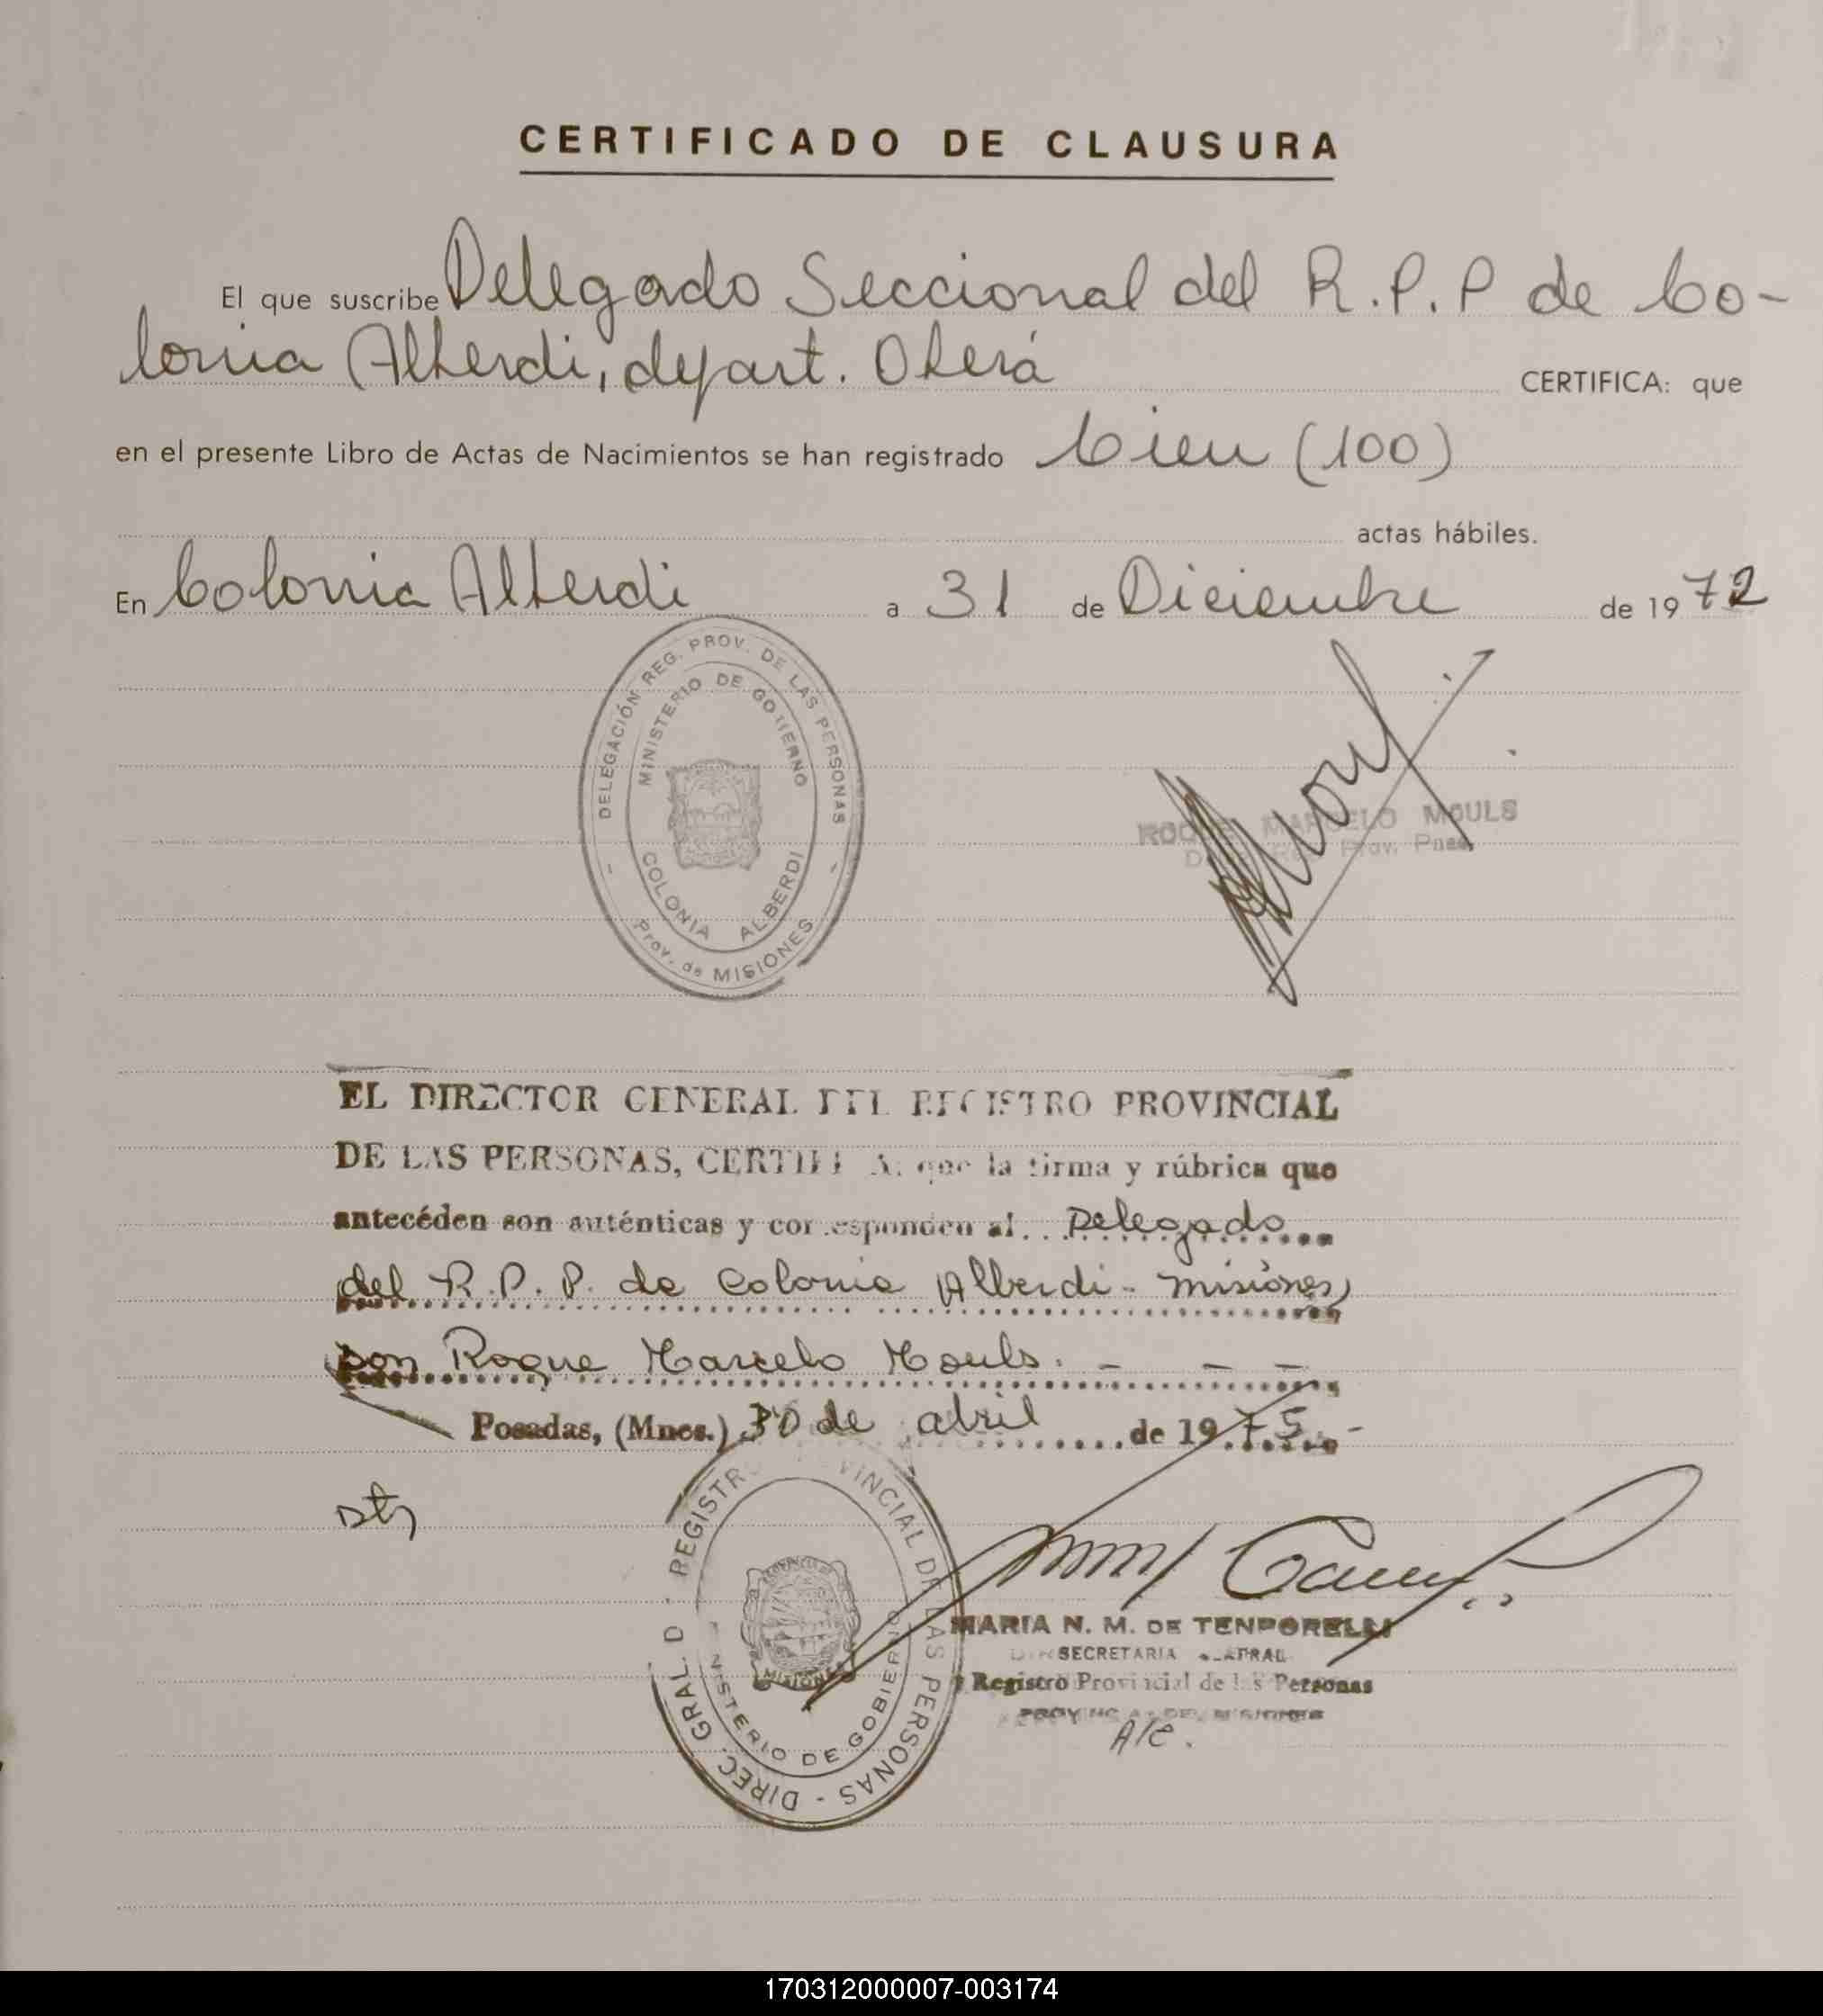 CERTIFICADO DE CLAUSURA
El que suscribe Delegado Seccional del R.P.P de Co-
lonia Alberdi, depart. Oberá CERTIFICA: que
en el presente Libro de Actas de Nacimientos se han registrado Cien (100)
actas hábiles.
En Colonia Alberdi a 31 de Diciembre de 1972
DELEGACIÓN REG. PROV. DE LAS PERSONAS
MINISTERIO DE GOBIERNO
COLONIA ALBERDI
Prov. de MISIONES
ROQUE MARCELO MOULS
Reg. Prov. Pnas.
EL DIRECTOR GENERAL DEL REGISTRO PROVINCIAL
DE LAS PERSONAS, CERTIFICA: que la firma y rúbrica que
antecéden son auténticas y corresponden al Delegado
del R.P.P. de Colonia Alberdi - Misiones,
Don Roque Marcelo Mouls. - - -
Posadas, (Mnes.) 30 de abril de 1975.-
DIREC. GRAL. D. REGISTRO PROVINCIAL DE LAS PERSONAS
MINISTERIO DE GOBIERNO
PROVINCIA
MISIONES
MARIA N. M. DE TENPORELLI
SECRETARIA
Registro Provincial de las Personas
PROVINCIA DE MISIONES
A/C.
170312000007-003174